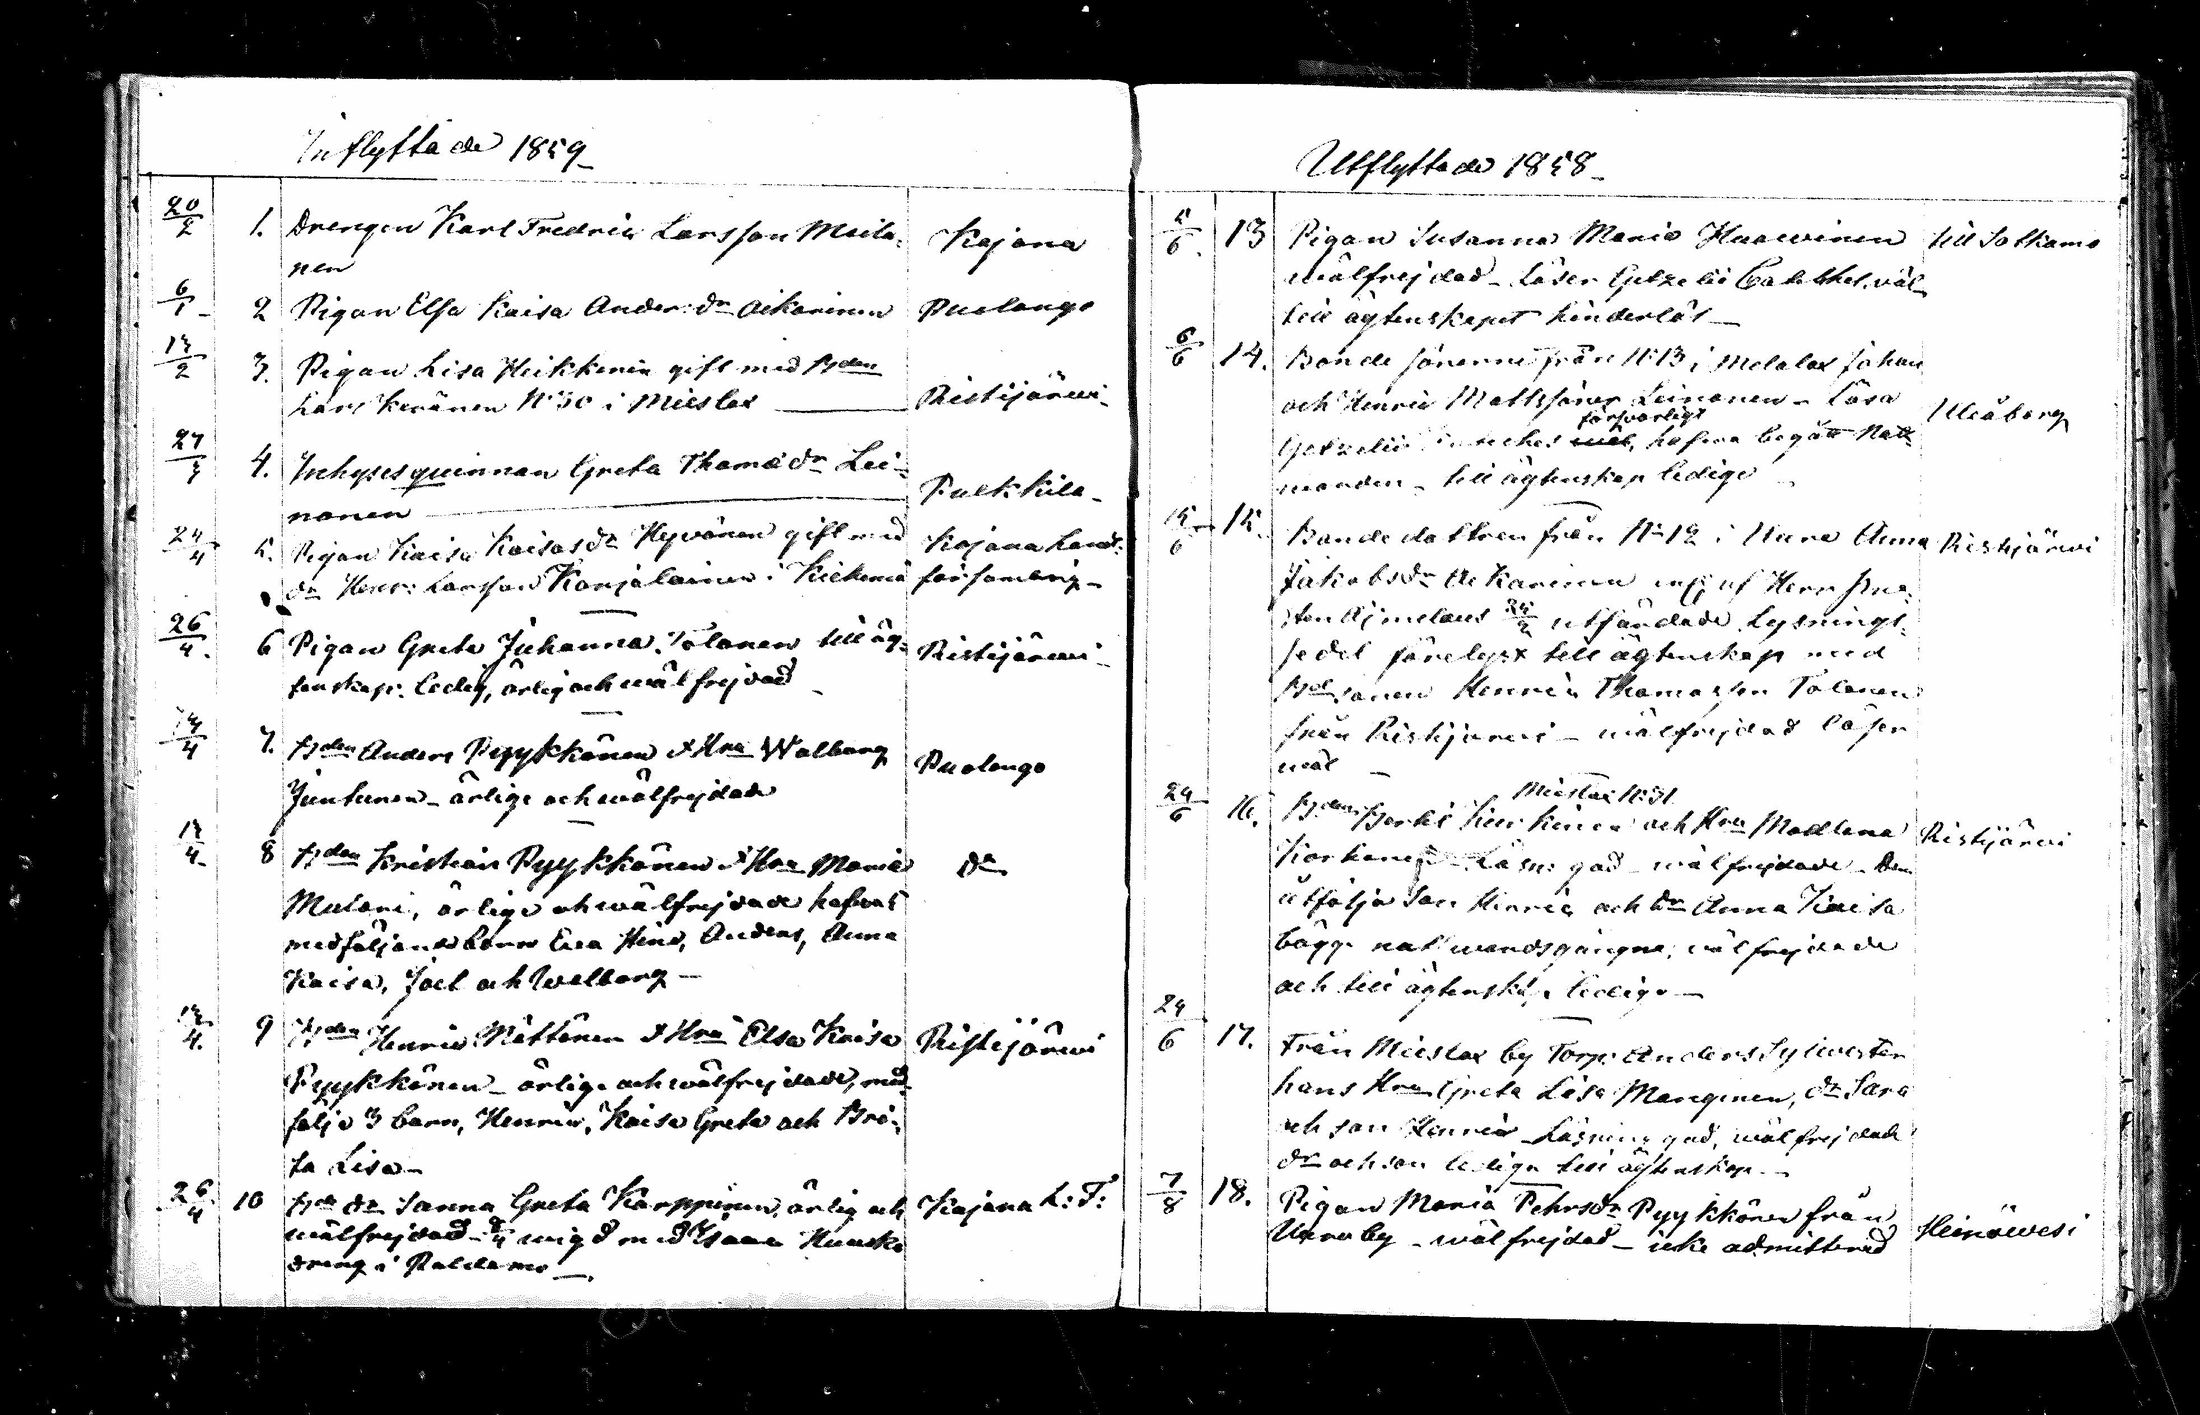 Inflyttade 1859
20/2 1. Drengen Karl Fredric Larsson Meila-
nen Kajana
6/1 2 Pigan Elsa Kaisa Anders dr Aikarinen Puolango
13/2 3. Pigan Lisa Heikkinen gift med Bden
Lars Keränen No 30 i Mieslax Ristijärwi
27/3 4. Inhysesquinnan Greta Thomædr Lei-
nonen Pulkkila
24/4 5. Pigan Kaisa Kaisasdr Hyvönen gift med Kajana Lands-
dr Henr: Larsson Karjalainen i Kiehimä församling
26/4 6 Pigan Greta Juhanna Tolonen till äg- Ristijärwi
tenskap ledig, ärlig och wälfrejdad
14/4 7. Bden Anders Pyykkönen & Hru Walborg
Juntunen - ärlige och wälfrejdade Puolango
13/4 8 Bden Kristian Pyykkönen & Hru Maria do
Mulari, ärlige och wälfrejdade hafwa
medföljande barn Eva Stina, Anders, Anna
Kaisa, Joel och Walborg
13/4 9 Bden Henric Määttänen & Hru Elsa Kaisa Ristijärwi
Pyykkönen - ärlige och wälfrejdade, med-
följa 3 barn, Henric, Kaisa Greta och Bri-
ta Lisa
26/4 10 Bde dr Sanna Greta Karppinen ärlig och Kajana L: F:
wälfrejdad - wigd med Isaac Huusko
dreng i Paldamo
Utflyttade 1858
5/6 13 Pigan Susanna Maria Huowinen till Sotkamo
wälfrejdad - Läser Getzelii Catechet. wäl
till ägtenskapet hinderlös
6/6 14. Bonde sönerne från No 13 i Melalax Johan
och Henric Mattssöner Leinonen - Läsa Uleåborg
försvarligt
Getzelii wäl, hafwa begått Natt-
warden - till ägtenskap ledige
15/6 15. Bonde dottren från No 12 i Uura Anna Ristijärwi
Jakobsdr Aikarinen enl: af Herr Pro-
sten Ajmelæus 24/4 utfärdade Lysnings-
sedel förelyst till ägtenskap med
Bdesonen Henric Thomasson Tolonen
från Ristijärwi - wälfrejdad läser
wäl
Mieslax No 31
24/6 16. Bden Bertil Kurkinen och Hru Madlena Ristijärwi
Korhonen - Läsn: god - wälfrejdade - Dem
åtfölja Son Henric och dr Anna Kaisa
bägge nattwardsgångne, wälfrejdade
och till ägtenskap ledige
24/6 17. Från Mieslax by Torp: Anders Sylwester
hans Hru Greta Lisa Manginen, dr Sara
och son Henric - Läsning god, wälfrejdade
dr och son ledige till ägtenskap
7/8 18. Pigan Maria Pehrsdr Pyykkönen från
Uura by - wälfrejdad - icke admitterad Heinäwesi